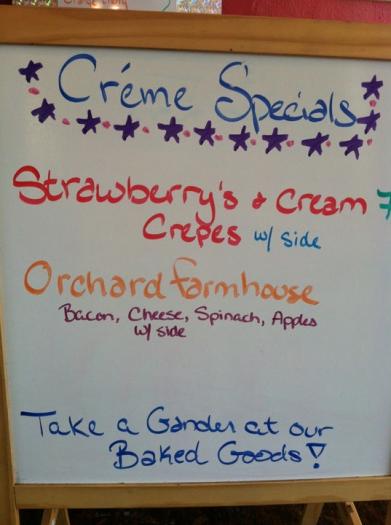 Créme Specials
Strawberry's & Cream 7
Crepes w/ side
Orchard farmhouse
Bacon, Cheese, Spinach, Apples
w/ side
Take a Gander at our
Baked Goods!